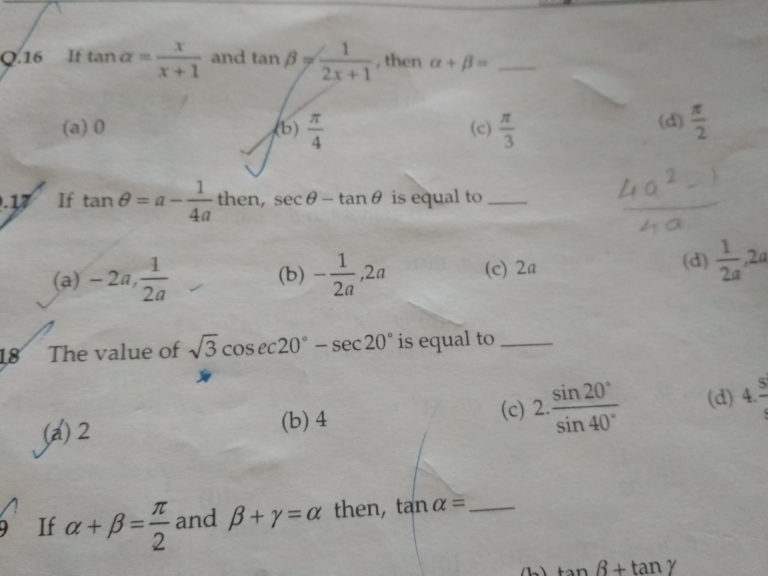 Q.16 If tan α = x/(x + 1) and tan β = 1/(2x + 1), then α + β = ____
(a) 0 (b) π/4 (c) π/3 (d) π/2
.17 If tan θ = a − 1/(4a) then, sec θ − tan θ is equal to ____
4a² - 1 / 4a
(a) − 2a, 1/(2a) (b) − 1/(2a) ,2a (c) 2a (d) 1/(2a) ,2a
18 The value of √3 cosec20° − sec20° is equal to ____
(a) 2 (b) 4 (c) 2. sin 20°/sin 40° (d) 4.
9 If α + β = π/2 and β + γ = α then, tan α = ____
(b) tan β + tan γ